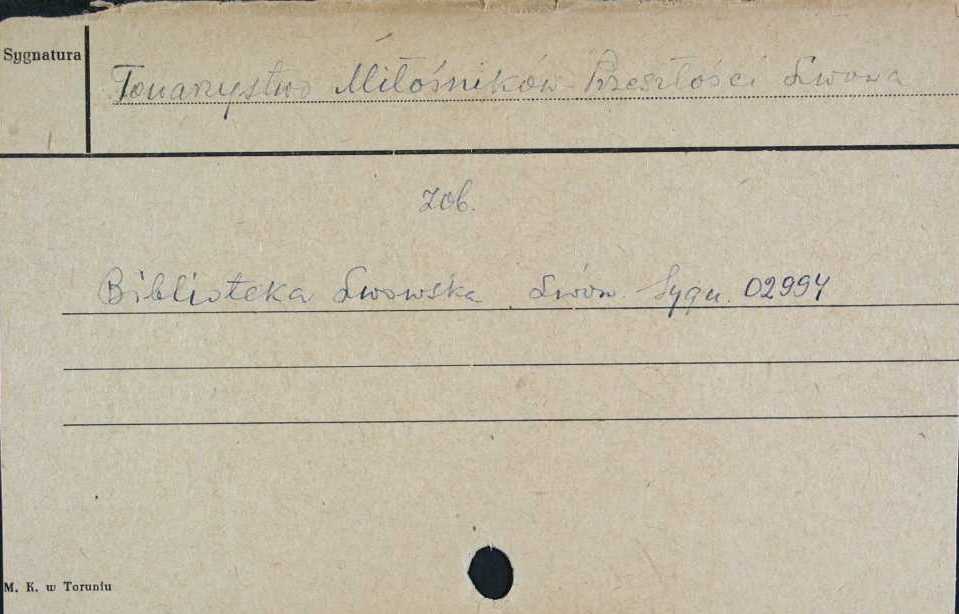 Sygnatura
Towarzystwo Miłośników Przeszłości Lwowa
zob.
Biblioteka Lwowska. Lwów. Sygn. 02994
M. K. w Toruniu